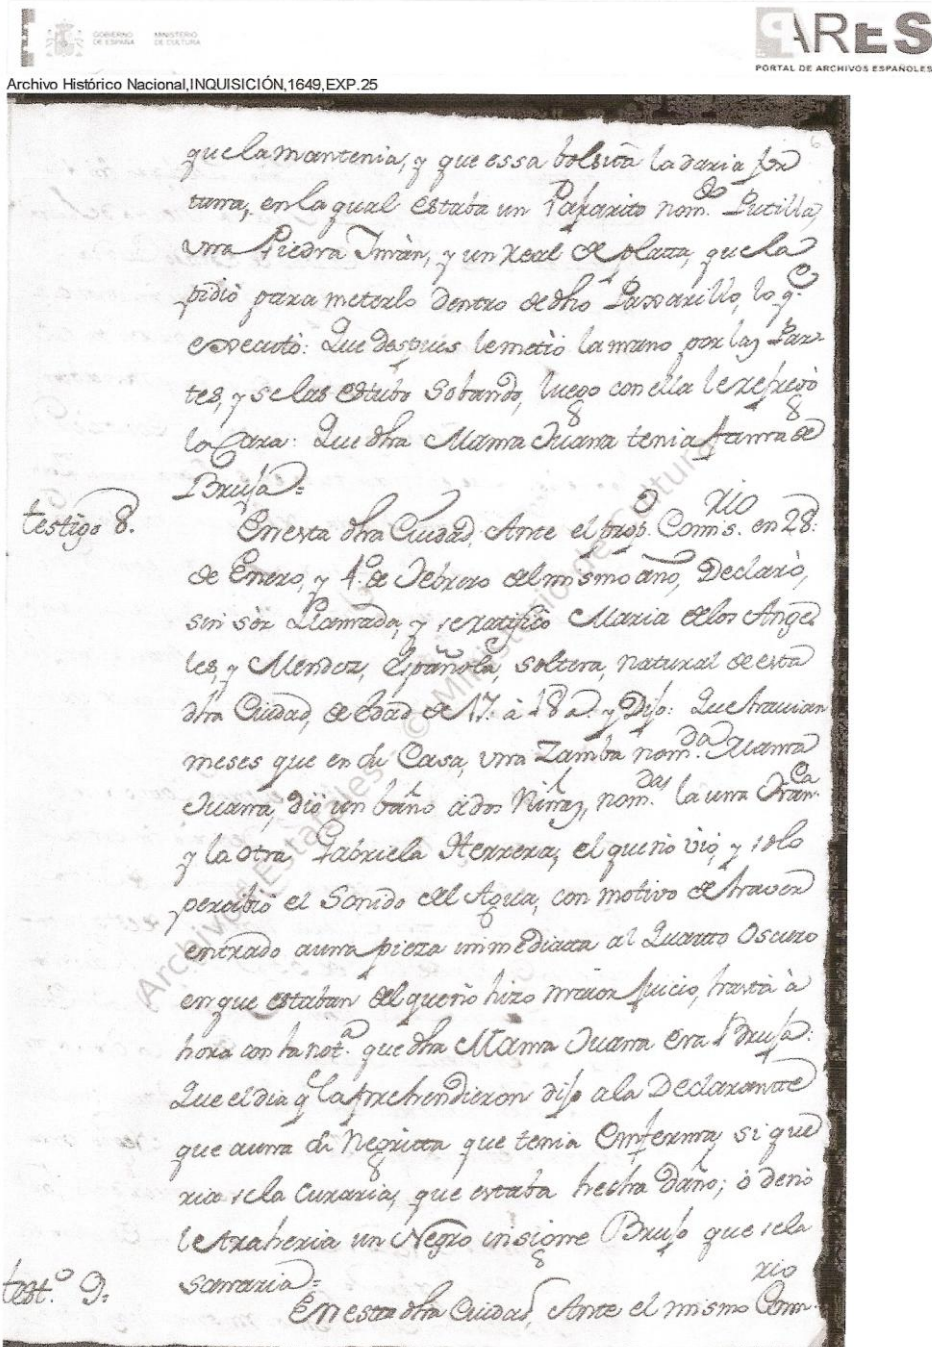 GOBIERNO DE ESPAÑA
MINISTERIO DE CULTURA
PARES
PORTAL DE ARCHIVOS ESPAÑOLES
Archivo Histórico Nacional,INQUISICIÓN,1649,EXP.25
6
que la mantenia, y que essa bolsita la daria for
tuna, en la qual estaba un Paxarito nom.do Putilla,
una Piedra Iman, y un Real de plata, que la
pidió para meterlo dentro de dho Paxarillo, lo q.e
executó: Que despues le metió la mano por las Par-
tes, y se las estubo sobando, luego con ella le refregó
la Cara: Que dha Mama Juana tenia fama de
Bruja =
testigo 8.
En esta dha Ciudad, Ante el prop.o Comis.rio en 28.
de Enero, y 4.o de Febrero del mismo año, Declaró,
sin sér Llamada, y se ratificó Maria de los Ange
les, y Mendez, Española, soltera, natural de esta
dha Ciudad, de edad de 17. à 18 a.s y Dijo: Que havian
meses que en su Casa, una Zamba nom.da Mama
Juana, dió un baño à dos Niñas, nom.das la una Fran.ca
y la otra, Gabriela Herrera, el que no vió, y solo
percibió el Sonido del Agua, con motivo de haver
entrado a una pieza inmediata al Quarto Oscuro
en que estaban del que no hizo maior juicio, hasta à
hora con la not.a que dha Mama Juana era Bruja:
Que el dia q.e la prehendieron dijo a la Declarante
que a una su Negrita que tenia Enferma, si que
ria se la Curaria, que estaba hecha daño; ó de no
le traheria un Negro insigne Brujo que se la
sanaria =
test.o 9.
En esta dha Ciudad, Ante el mismo Com.rio
Archivos Estatales © Ministerio de Cultura